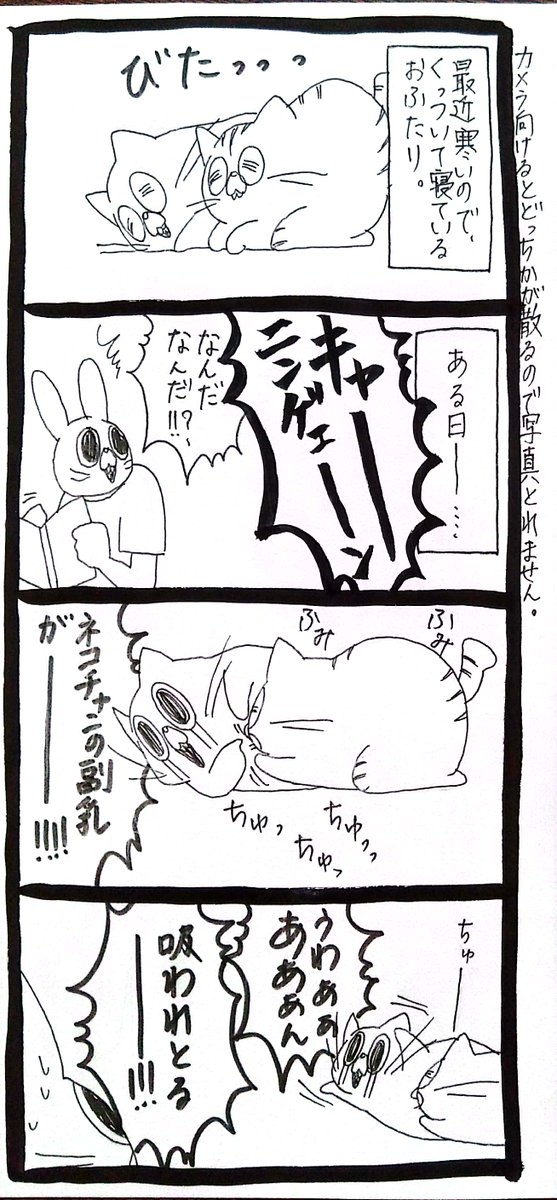 カメラ向けるとどっちかが散るので写真とれません。
最近寒いので、
くっついて寝ている
おふたり。
びたっっっ
ある日ー……
キャーー
ニンゲェーーン
なんだ
なんだ!!?
ふみ
ふみ
ちゅっっ
ちゅっ
ちゅっ
ネコチャンの副乳
がー!!!!
ちゅー
うわぁぁ
あぁぁん
吸われとる
ー!!!